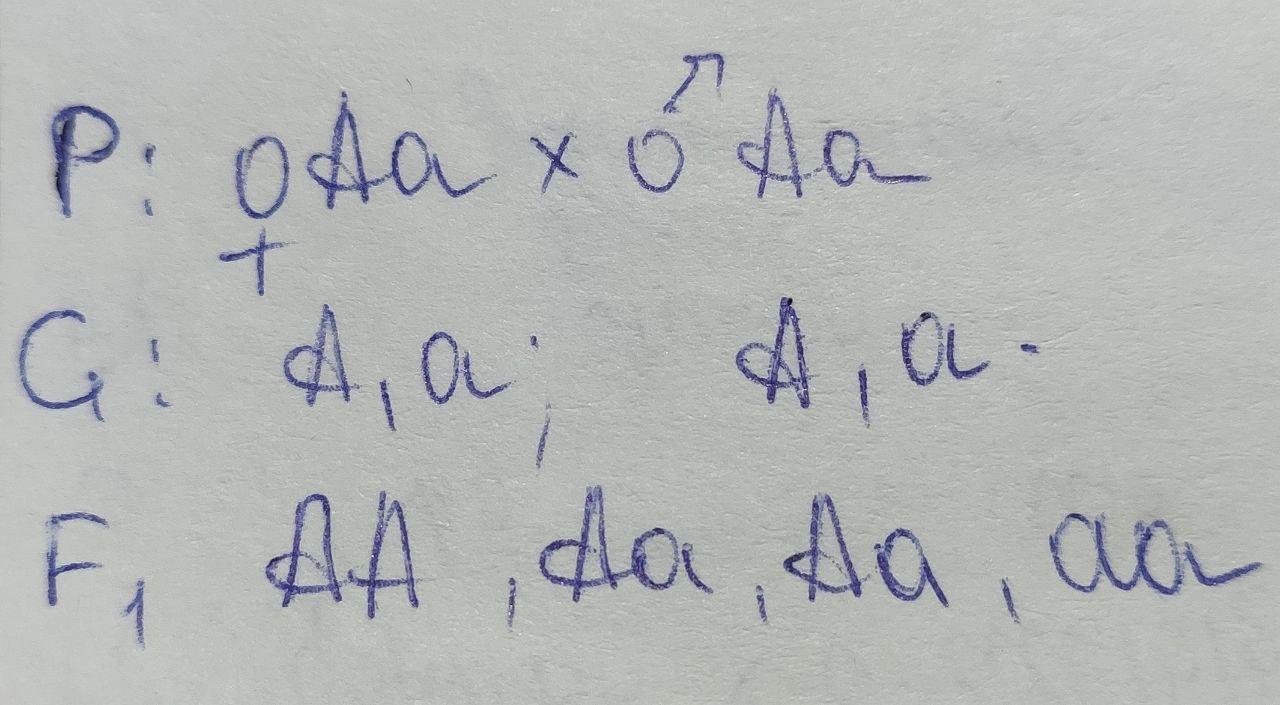 P: ♀Aa × ♂Aa
G: A, a; A, a.
F₁ AA, Aa, Aa, aa